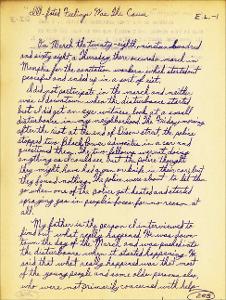 Ill-fated Feelings Are The Cause
E.L.-1
On March the twenty-eighth, nineteen hundred
and sixty eight a Thursday, there occurred a march in
Memphis for the sanitation workers which started out
peaceful and ended up in a sort of riot.
I did not participate in the march and neither
was I downtown when the disturbance started
but I did get an eye witness look of a small
disturbance in my neighborhood. The Friday morning
after the riot at the end of street the police
stopped two Black boys in a car and
They two fellows weren't doing
anything as I could see, but the police thought
they might have had a gun or knife in their car, but
they found nothing. The police were about to let them
go when one of the police got heated and started
spraying gas in people's faces for no reason at
all.
My father is the person I interviewed to
find out what really happened. He was down
town the day of the March and was pushed into
the disturbance when it started happening. He
said that what really happened was that most
of the young people and some older persons also,
who were not primarily concerned with help-
203